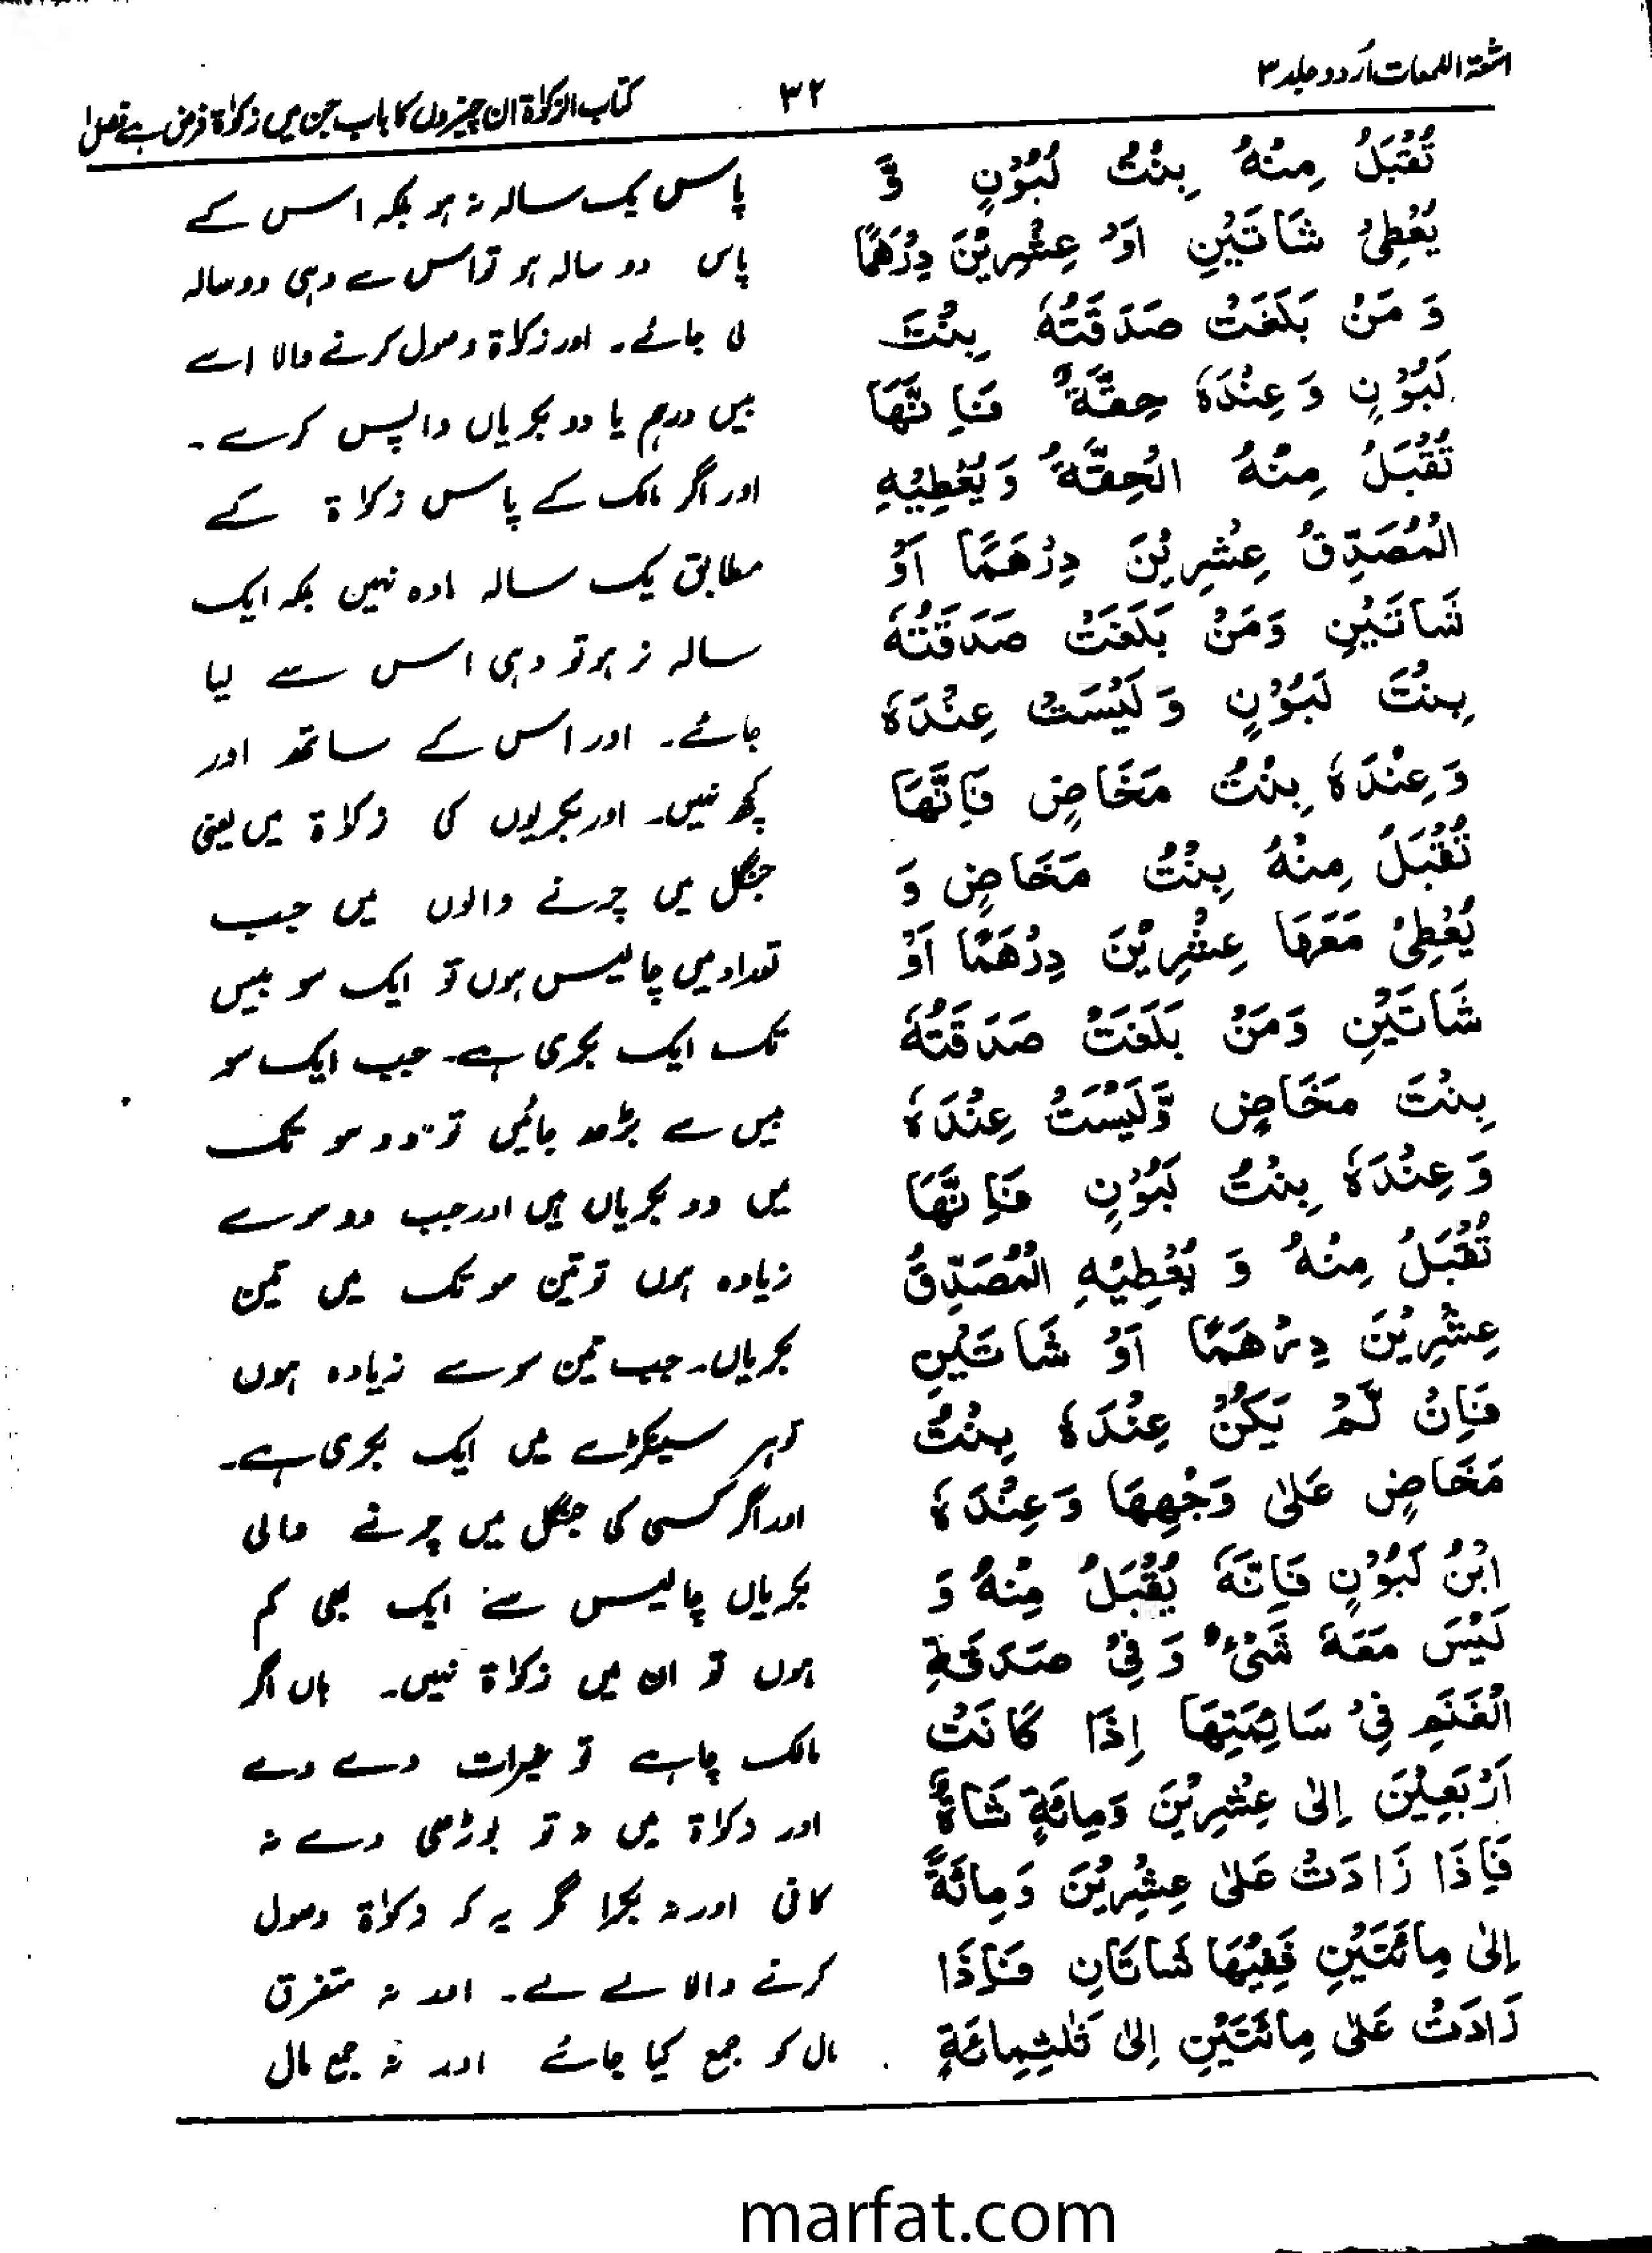 اشعۃ اللمعات اُردو جلد ۳
۳۲
کتاب الزکوٰۃ ان چیزوں کا باب جن میں زکوٰۃ فرض ہے فصل۱
تُقْبَلُ مِنْهُ بِنْتُ لَبُوْنٍ وَّ
يُعْطِيْ شَاتَيْنِ اَوْ عِشْرِيْنَ دِرْهَمًا
وَ مَنْ بَلَغَتْ صَدَقَتُهٗ بِنْتَ
لَبُوْنٍ وَعِنْدَهٗ حِقَّةٌ فَاِنَّهَا
تُقْبَلُ مِنْهُ الْحِقَّةُ وَيُعْطِيْهِ
الْمُصَدِّقُ عِشْرِيْنَ دِرْهَمًا اَوْ
شَاتَيْنِ وَمَنْ بَلَغَتْ صَدَقَتُهٗ
بِنْتَ لَبُوْنٍ وَلَيْسَتْ عِنْدَهٗ
وَعِنْدَهٗ بِنْتُ مَخَاضٍ فَاِنَّهَا
تُقْبَلُ مِنْهُ بِنْتُ مَخَاضٍ وَ
يُعْطِيْ مَعَهَا عِشْرِيْنَ دِرْهَمًا اَوْ
شَاتَيْنِ وَمَنْ بَلَغَتْ صَدَقَتُهٗ
بِنْتَ مَخَاضٍ وَّلَيْسَتْ عِنْدَهٗ
وَعِنْدَهٗ بِنْتُ لَبُوْنٍ فَاِنَّهَا
تُقْبَلُ مِنْهُ وَ يُعْطِيْهِ الْمُصَدِّقُ
عِشْرِيْنَ دِرْهَمًا اَوْ شَاتَيْنِ
فَاِنْ لَّمْ يَكُنْ عِنْدَهٗ بِنْتُ
مَخَاضٍ عَلٰى وَجْهِهَا وَعِنْدَهٗ
ابْنُ لَبُوْنٍ فَاِنَّهٗ يُقْبَلُ مِنْهُ وَ
لَيْسَ مَعَهٗ شَيْءٌ وَفِيْ صَدَقَةِ
الْغَنَمِ فِيْ سَائِمَتِهَا اِذَا كَانَتْ
اَرْبَعِيْنَ اِلٰى عِشْرِيْنَ وَمِائَةٍ شَاةٌ
فَاِذَا زَادَتْ عَلٰى عِشْرِيْنَ وَمِائَةً
اِلٰى مِائَتَيْنِ فَفِيْهَا شَاتَانِ فَاِذَا
زَادَتْ عَلٰى مِائَتَيْنِ اِلٰى ثَلٰثِمِائَةٍ
پاس یک سالہ نہ ہو بلکہ اس کے
پاس دو سالہ ہو تو اس سے وہی دو سالہ
لی جائے۔ اور زکاۃ وصول کرنے والا اسے
بیس درہم یا دو بکریاں واپس کرے۔
اور اگر مالک کے پاس زکاۃ کے
مطابق یک سالہ مادہ نہیں بلکہ ایک
سالہ نر ہو تو وہی اس سے لیا
جائے۔ اور اس کے ساتھ اور
کچھ نہیں۔ اور بکریوں کی زکاۃ میں یعنی
جنگل میں چرنے والوں میں جب
تعداد میں چالیس ہوں تو ایک سو بیس
تک ایک بکری ہے۔ جب ایک سو
بیس سے بڑھ جائیں تو دو سو تک
میں دو بکریاں ہیں اور جب دو سو سے
زیادہ ہوں تو تین سو تک میں تین
بکریاں۔ جب تین سو سے زیادہ ہوں
تو ہر سینکڑے میں ایک بکری ہے۔
اور اگر کسی کی جنگل میں چرنے والی
بکریاں چالیس سے ایک بھی کم
ہوں تو ان میں زکاۃ نہیں۔ ہاں اگر
مالک چاہے تو خیرات دے دے
اور زکاۃ میں نہ تو بوڑھی دے نہ
کانی اور نہ بکرا مگر یہ کہ زکوٰۃ وصول
کرنے والا لے لے۔ اور نہ متفرق
مال کو جمع کیا جائے اور نہ جمع مال
marfat.com